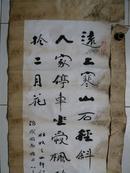 遠上寒山石徑斜
人家停車坐愛楓
於二月花